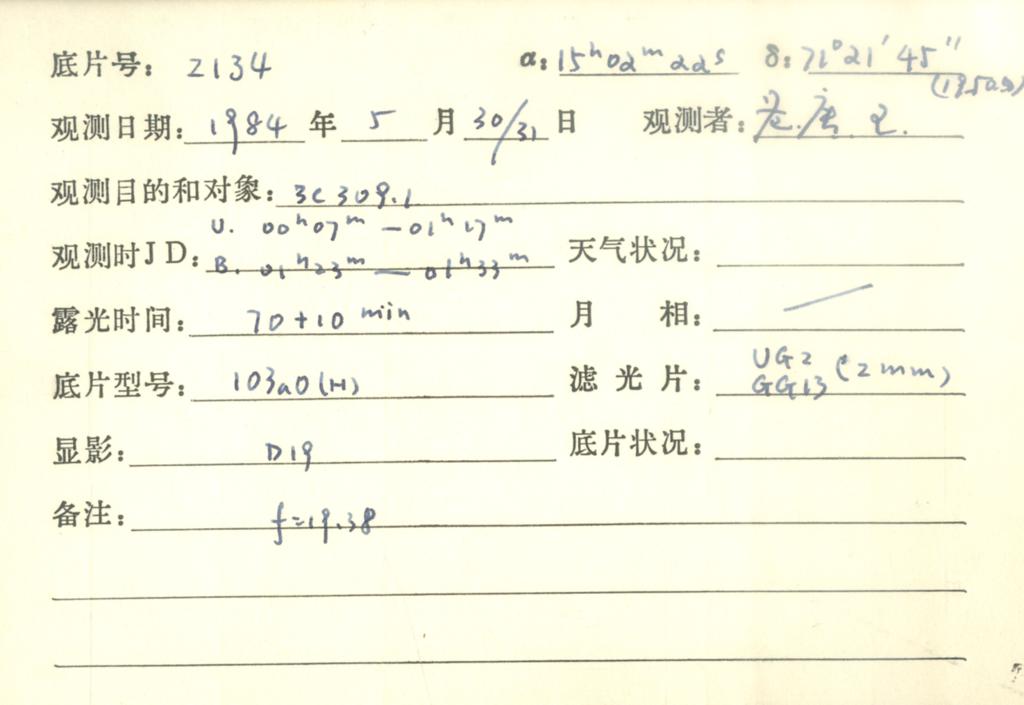 底片号: 2134 α: 15ʰ02ᵐ22ˢ δ: 71°21′45″
(1950.0)
观测日期: 1984 年 5 月 30/31 日 观测者: 唐. 王.
观测目的和对象: 3C309.1
U. 00ʰ07ᵐ — 01ʰ17ᵐ
观测时JD: B. 01ʰ23ᵐ — 01ʰ33ᵐ 天气状况:
露光时间: 70+10 min 月 相: /
底片型号: 103aO(H) 滤光片: UG2 GG13 (2mm)
显影: D19 底片状况:
备注: f=19.38